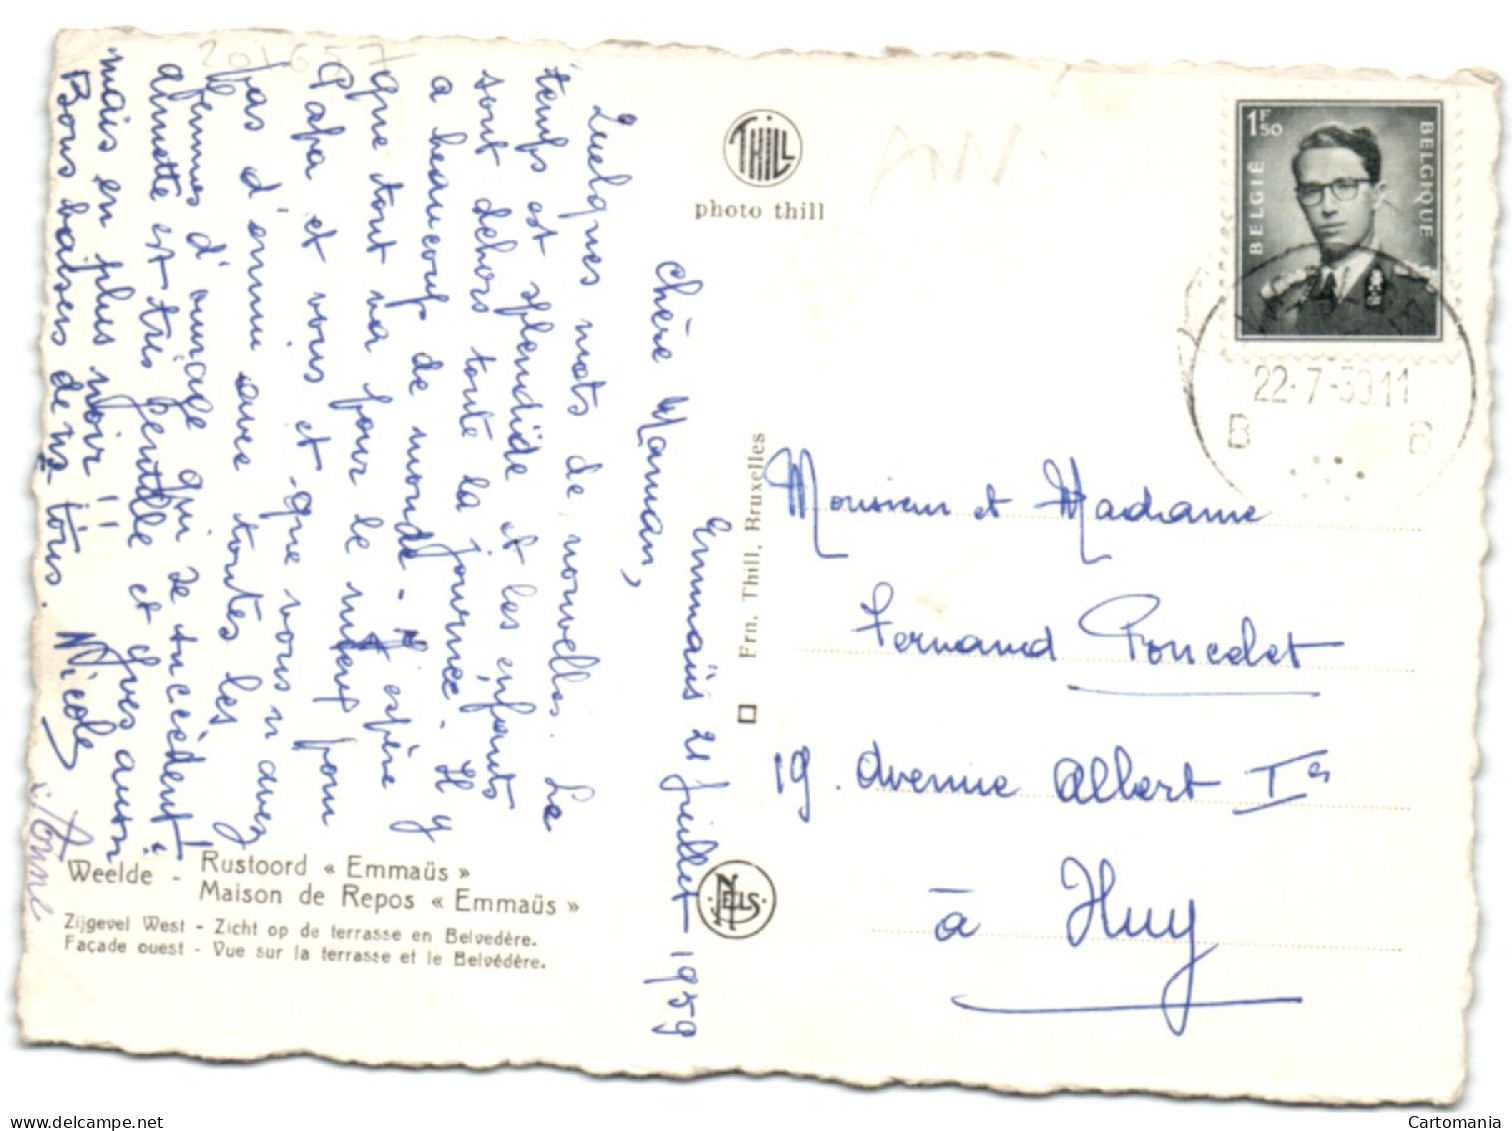 201657
Emmaüs 21 Juillet 1959
Chère Maman,
Quelques mots de nouvelles. Le
temps est splendide et les enfants
sont dehors toute la journée. Il y
a beaucoup de monde - J'espère
que tout va pour le mieux pour
Papa et vous et que vous n'avez
pas d'ennui avec toutes les
femmes d'ouvrage qui se succèdent!
Annette est très gentille et Yves aussi
mais en plus noir!!
Bons baisers de ns tous. Nicole
THILL
photo thill
BELGIË
BELGIQUE
1F50
22-7-59.11
B B
Monsieur et Madame
Fernand Poncelet
19. Avenue Albert Ier
à Huy
Ern. Thill, Bruxelles
NELS
Weelde - Rustoord « Emmaüs »
Maison de Repos « Emmaüs »
Zijgevel West - Zicht op de terrasse en Belvedère.
Façade ouest - Vue sur la terrasse et le Belvédère.
delcampe.net
Cartomania